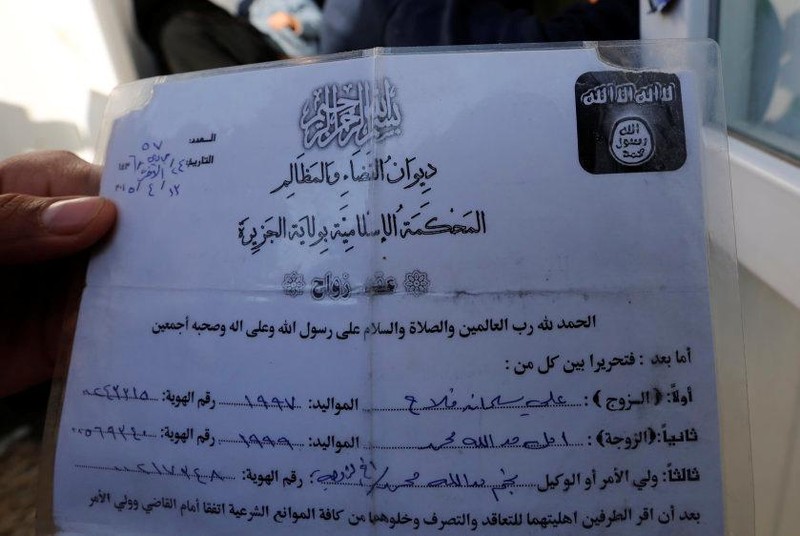 بسم الله الرحمن الرحيم
لا اله الا الله
الله
رسول
محمد
العدد: ٥٧
التاريخ: ٢٤/
٢٠١٥/٤/١٢
ديوان القضاء والمظالم
المحكمة الإسلامية بولاية الجزيرة
عقد زواج
الحمد لله رب العالمين والصلاة والسلام على رسول الله وعلى اله وصحبه أجمعين
أما بعد : فتحريرا بين كل من :
أولاً: (الزوج) : علي سليمان فلاح المواليد: ١٩٩٧ رقم الهوية:
ثانياً: (الزوجة) : امل عبد الله محمد المواليد: ١٩٩٩ رقم الهوية:
ثالثاً: ولي الأمر أو الوكيل نجم عبد الله محمد / اخ الزوجة رقم الهوية:
بعد أن اقر الطرفين اهليتهما للتعاقد والتصرف وخلوهما من كافة الموانع الشرعية اتفقا أمام القاضي وولي الأمر